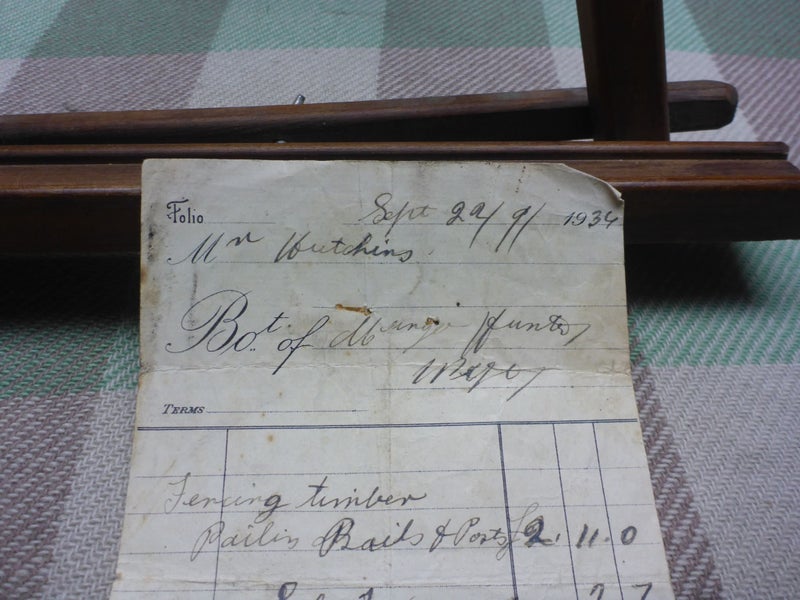 Folio Sept 29/9/ 1934
Mr Hutchins
Bot. of Mungo Hunter
TERMS
Fencing timber
Pailin Rails & Posts £2. 11. 0
2 7